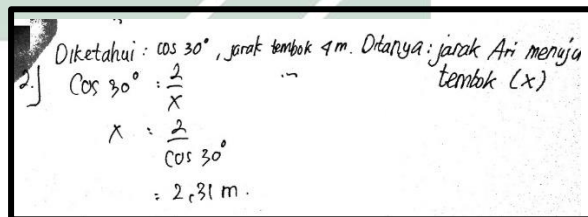 Diketahui : cos 30°, jarak tembok 4m. Ditanya : jarak Ari menuju tembok (x)
2.) Cos 30° : 2/x
x : 2/cos 30°
= 2,31 m.